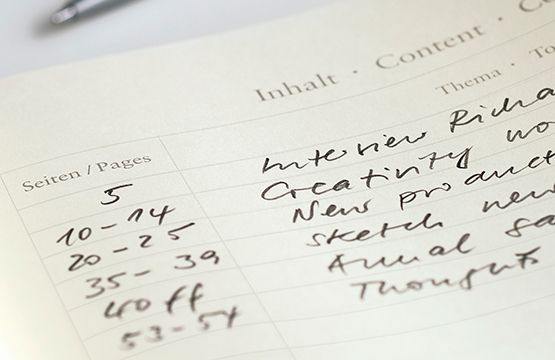 Inhalt · Content · Co
Thema · To
Seiten / Pages
5 Interview Richa
10 - 14 Creativity wo
20 - 25 New product
35 - 39 sketch new
40 ff Annual sa
53 - 54 Thoughts